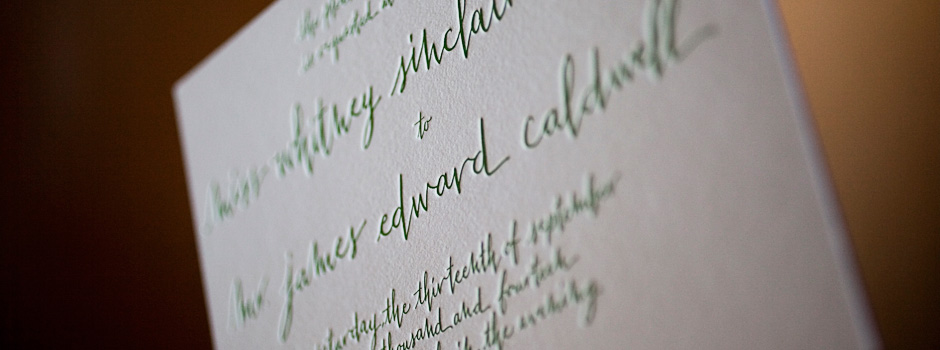 is requested at
miss whitney sinclair
to
mr james edward caldwell
the thirteenth of september
thousand and fourteen
the evening